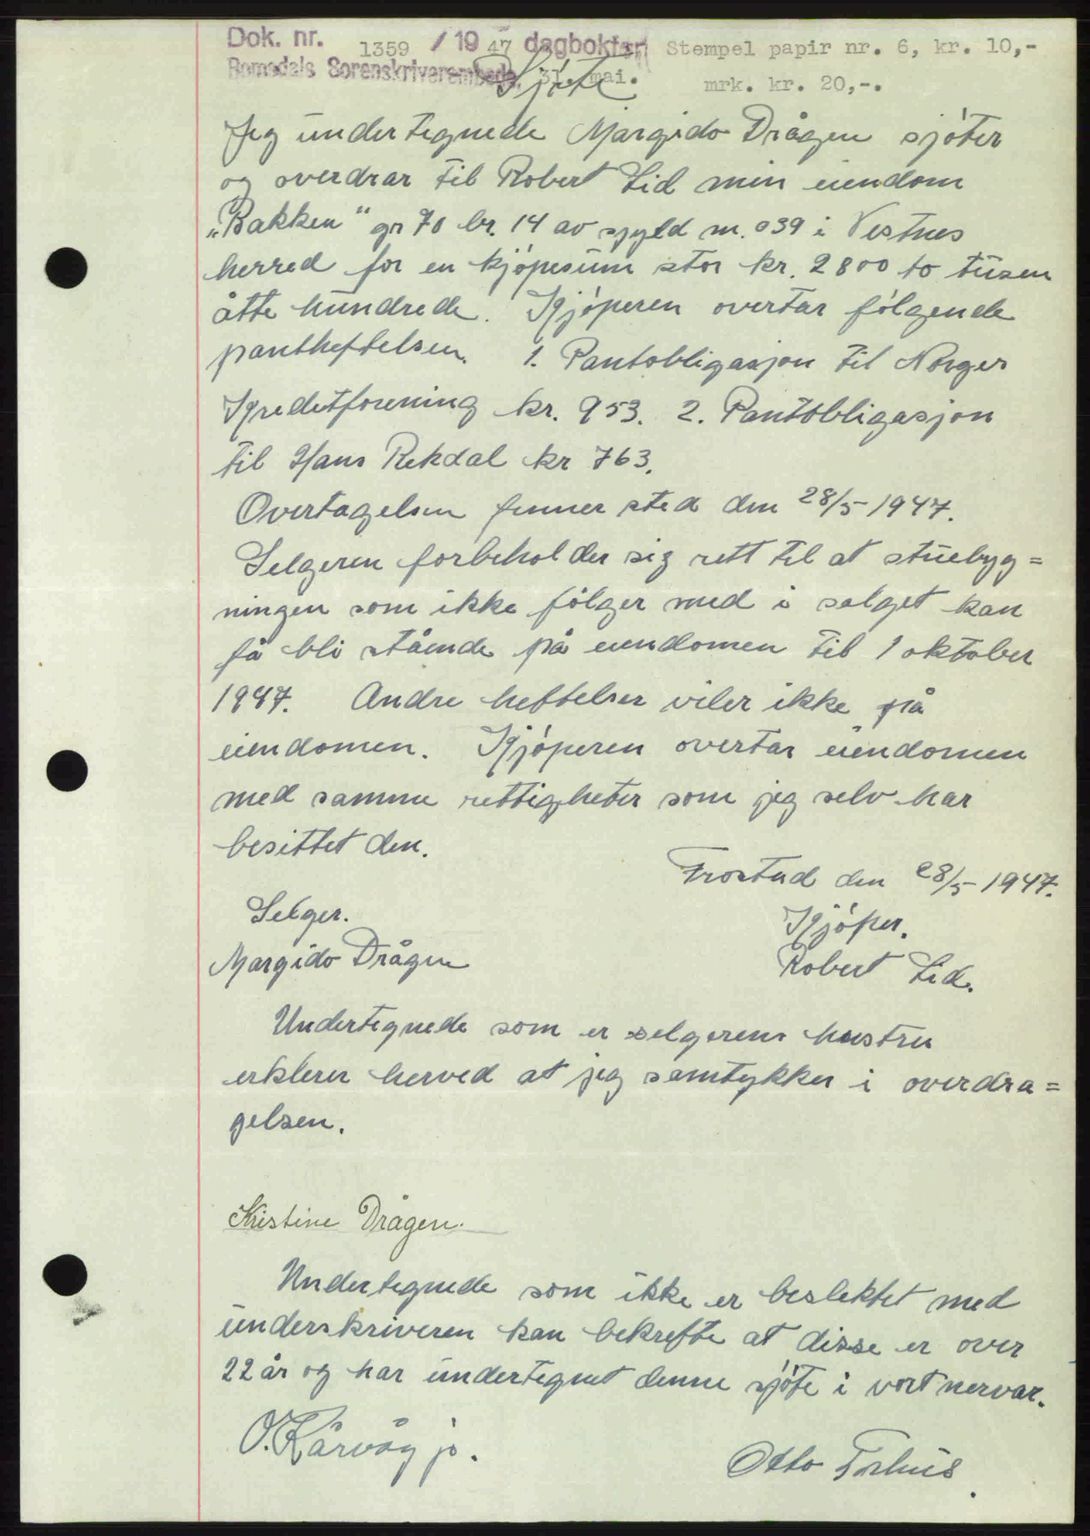 Dok. nr. 1359 / 19 47 dagbokført Stempel papir nr. 6, kr. 10,-
Romsdals Sorenskriverembede, 31. mai. mrk. kr. 20,-.
Sjöte
Jeg undertegnede Margido Drågen sjöter
og overdrar til Robert Lid min eiendom
„Bakken" gr 70 br. 14 av skyld m. 039 i Vestnes
herred for en kjöpesum stor kr. 2800 to tusen
åtte hundrede. Kjöperen overtar fölgende
pantheftelser. 1. Pantobligasjon til Norges
Kreditforening kr. 953. 2. Pantobligasjon
til Hans Rekdal kr 763.
Overtagelsen finner sted den 28/5-1947.
Selgeren forbeholder sig rett til at stuebyg=
ningen som ikke fölger med i salget kan
få bli stående på eiendomen til 1 oktober
1947. Andre heftelser viler ikke på
eiendomen. Kjöperen overtar eiendomen
med samme rettigheter som jeg selv har
besittet den.
Frostad den 28/5-1947.
Selger. Kjöper.
Margido Drågen Robert Lid.
Undertegnede som er selgerens hustru
erklerer herved at jeg samtykker i overdra=
gelsen.
Kristine Drågen.
Undertegnede som ikke er beslektet med
underskriveren kan bekrefte at disse er over
22 år og har undertegnet denne sjöte i vort nervær.
O. Kårvåg jo. Otto